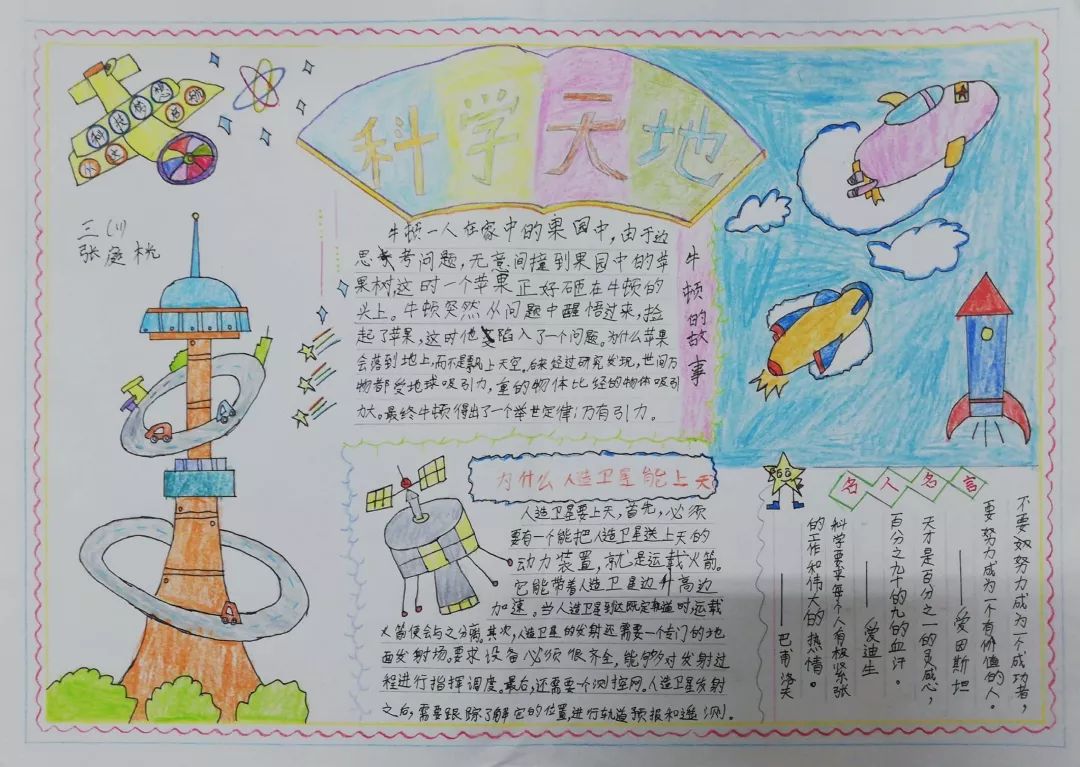 科学天地
三(1)
张庭
牛顿的故事
牛顿一人在家中的果园中,由于边
思考问题,无意间撞到果园中的苹
果树这时一个苹果正好砸在牛顿的
头上。牛顿突然从问题中醒悟过来,捡
起了苹果,这时他陷入了一个问题。为什么苹果
会落到地上,而不是飘上天空,后来经过研究发现,世间万
物都受地球吸引力,重的物体比轻的物体吸引
力大。最终牛顿得出了一个举世定律:万有引力。
为什么人造卫星能上天
人造卫星要上天,首先,必须
要有一个能把人造卫星送上天的
动力装置,就是运载火箭。
它能带着人造卫星边升高边
加速。当人造卫星到达既定轨道时运载
火箭便会与之分离。其次,人造卫星的发射还需要一个专门的地
面发射场。要求设备必须很齐全,能够对发射过
程进行指挥调度。最后,还需要一个测控网。人造卫星发射
之后,需要跟踪了解它的位置,进行轨道预报和遥测。
名人名言
不要努力成为一个成功者,
要努力成为一个有价值的人。
——爱因斯坦
天才是百分之一的灵感心,
百分之九十的九的血汗。
——爱迪生
科学要求每个人有极紧张
的工作和伟大的热情。
——巴甫洛夫